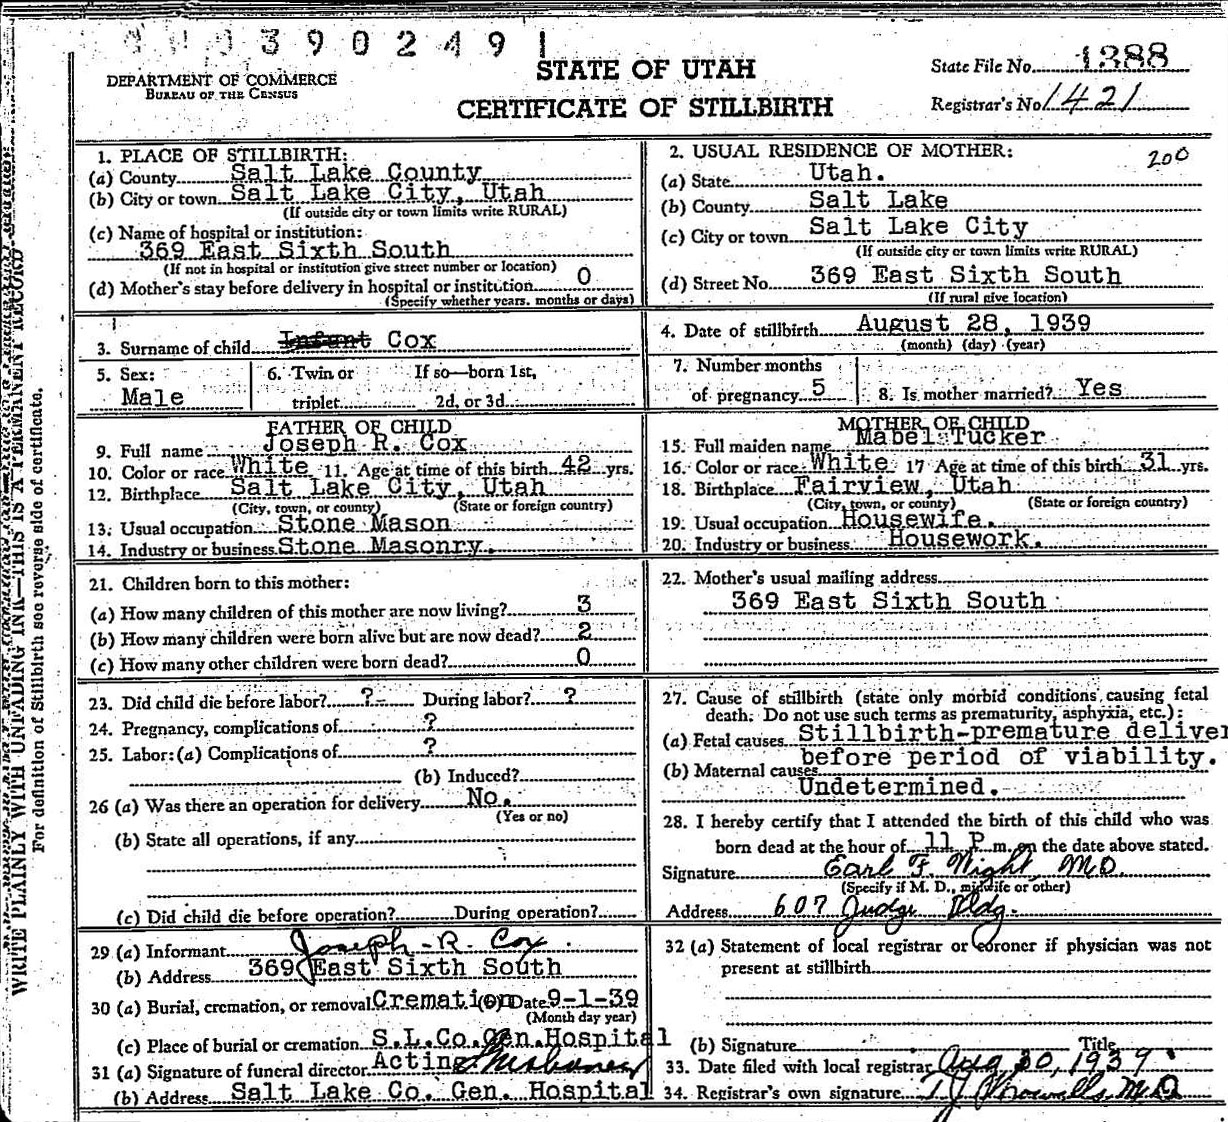 0390249 1
DEPARTMENT OF COMMERCE
BUREAU OF THE CENSUS
STATE OF UTAH
CERTIFICATE OF STILLBIRTH
State File No. 1388
Registrar's No 1421
WRITE PLAINLY WITH UNFADING INK—THIS IS A PERMANENT RECORD
For definition of Stillbirth see reverse side of certificate.
1. PLACE OF STILLBIRTH:
(a) County Salt Lake County
(b) City or town Salt Lake City, Utah
(If outside city or town limits write RURAL)
(c) Name of hospital or institution:
369 East Sixth South
(If not in hospital or institution give street number or location)
(d) Mother's stay before delivery in hospital or institution 0
(Specify whether years, months or days)
2. USUAL RESIDENCE OF MOTHER: 200
(a) State Utah.
(b) County Salt Lake
(c) City or town Salt Lake City
(If outside city or town limits write RURAL)
(d) Street No. 369 East Sixth South
(If rural give location)
3. Surname of child Infant Cox
4. Date of stillbirth August 28, 1939
(month) (day) (year)
5. Sex: Male
6. Twin or triplet If so—born 1st, 2d, or 3d
7. Number months of pregnancy 5
8. Is mother married? Yes
FATHER OF CHILD
9. Full name Joseph R. Cox
10. Color or race White 11. Age at time of this birth 42 yrs.
12. Birthplace Salt Lake City, Utah
(City, town, or county) (State or foreign country)
13. Usual occupation Stone Mason
14. Industry or business Stone Masonry.
MOTHER OF CHILD
15. Full maiden name Mabel Tucker
16. Color or race White 17 Age at time of this birth 31 yrs.
18. Birthplace Fairview, Utah
(City, town, or county) (State or foreign country)
19. Usual occupation Housewife.
20. Industry or business Housework.
21. Children born to this mother:
(a) How many children of this mother are now living? 3
(b) How many children were born alive but are now dead? 2
(c) How many other children were born dead? 0
22. Mother's usual mailing address
369 East Sixth South
23. Did child die before labor? ? During labor? ?
24. Pregnancy, complications of ?
25. Labor: (a) Complications of ?
(b) Induced?
26 (a) Was there an operation for delivery No.
(Yes or no)
(b) State all operations, if any
(c) Did child die before operation? During operation?
27. Cause of stillbirth (state only morbid conditions causing fetal
death. Do not use such terms as prematurity, asphyxia, etc.):
(a) Fetal causes Stillbirth-premature deliver
before period of viability.
(b) Maternal causes
Undetermined.
28. I hereby certify that I attended the birth of this child who was
born dead at the hour of 11 P. m. on the date above stated.
Signature Earl F. Wight, M.D.
(Specify if M. D., midwife or other)
Address 607 Judge Bldg.
29 (a) Informant Joseph R. Cox
(b) Address 369 East Sixth South
30 (a) Burial, cremation, or removal Cremation (b) Date 9-1-39
(Month day year)
(c) Place of burial or cremation S.L.Co.Gen.Hospital
31 (a) Signature of funeral director Acting
(b) Address Salt Lake Co. Gen. Hospital
32 (a) Statement of local registrar or coroner if physician was not
present at stillbirth
(b) Signature Title
33. Date filed with local registrar Aug 30, 1939
34. Registrar's own signature T J Howells M.D.